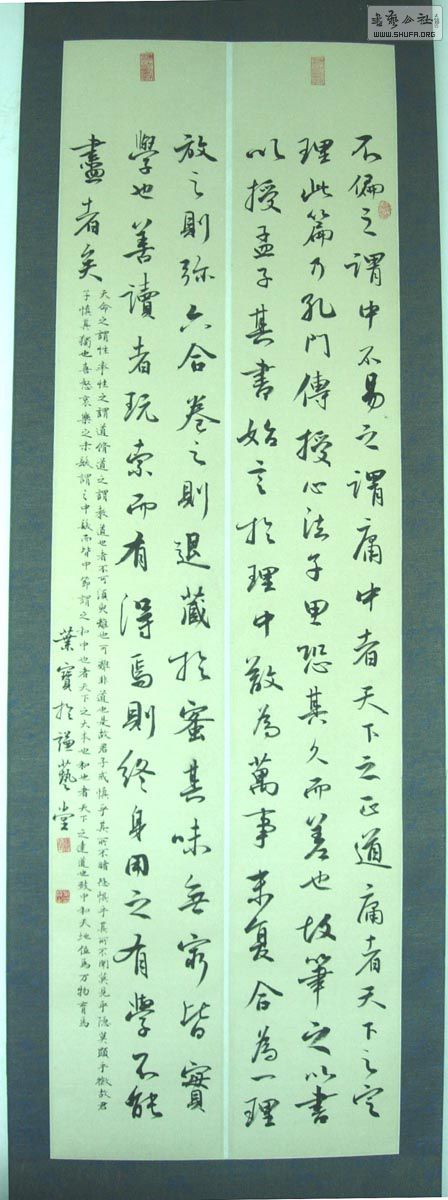 不偏之謂中不易之謂庸中者天下之正道庸者天下之定
理此篇乃孔門傳授心法子思恐其久而差也故筆之以書
以授孟子其書始言於理中散為萬事末复合為一理
放之則弥六合卷之則退藏於蜜其味無窮皆實
學也善讀者玩索而有得焉則终身用之有學不能
盡者矣
天命之謂性率性之謂道脩道之謂教道也者不可須臾離也可離非道也是故君子戒慎乎其所不睹恐惧乎其所不闻莫見乎隐莫顯乎微故君
子慎其獨也喜怒哀樂之未發謂之中發而皆中節謂之和中也者天下之大本也和也者天下之達道也致中和天地位焉万物育焉
葉寶於謙藝堂
書藝公社
WWW.SHUFA.ORG